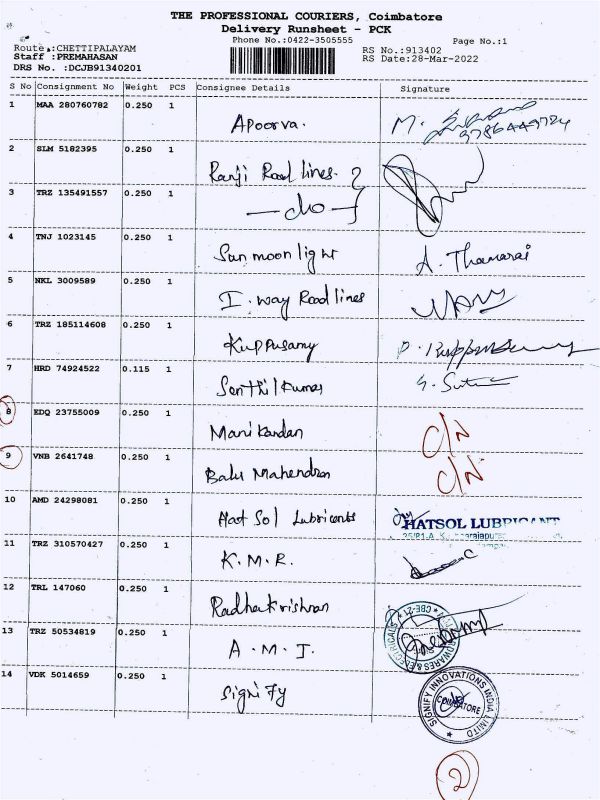 THE PROFESSIONAL COURIERS, Coimbatore
Delivery Runsheet - PCK
Phone No.:0422-3505555 Page No.:1
Route :CHETTIPALAYAM RS No.:913402
Staff :PREMAHASAN RS Date:28-Mar-2022
DRS No. :DCJB91340201
S No Consignment No Weight PCS Consignee Details Signature
1 MAA 280760782 0.250 1 Apoorva. M.
9786449784
2 SLM 5182395 0.250 1 Ranji Road lines.
3 TRZ 135491557 0.250 1 —do—
4 TNJ 1023145 0.250 1 Sun moon light A. Thamarai
5 NKL 3009589 0.250 1 I. way Road lines
6 TRZ 185114608 0.250 1 Kuppusamy P. Kuppusamy
7 HRD 74924522 0.115 1 Senthil Kumar
8 EDQ 23755009 0.250 1 Manikandan C/N
9 VNB 2641748 0.250 1 Balu Mahendran C/N
10 AMD 24298081 0.250 1 Hat Sol Lubricants HATSOL LUBRICANT
11 TRZ 310570427 0.250 1 K.M.R.
12 TRL 147060 0.250 1 Radhakrishnan
13 TRZ 50534819 0.250 1 A.M.I. CBE-21
14 VDK 5014659 0.250 1 Signify SIGNIFY INNOVATIONS INDIA LIMITED
COIMBATORE
2